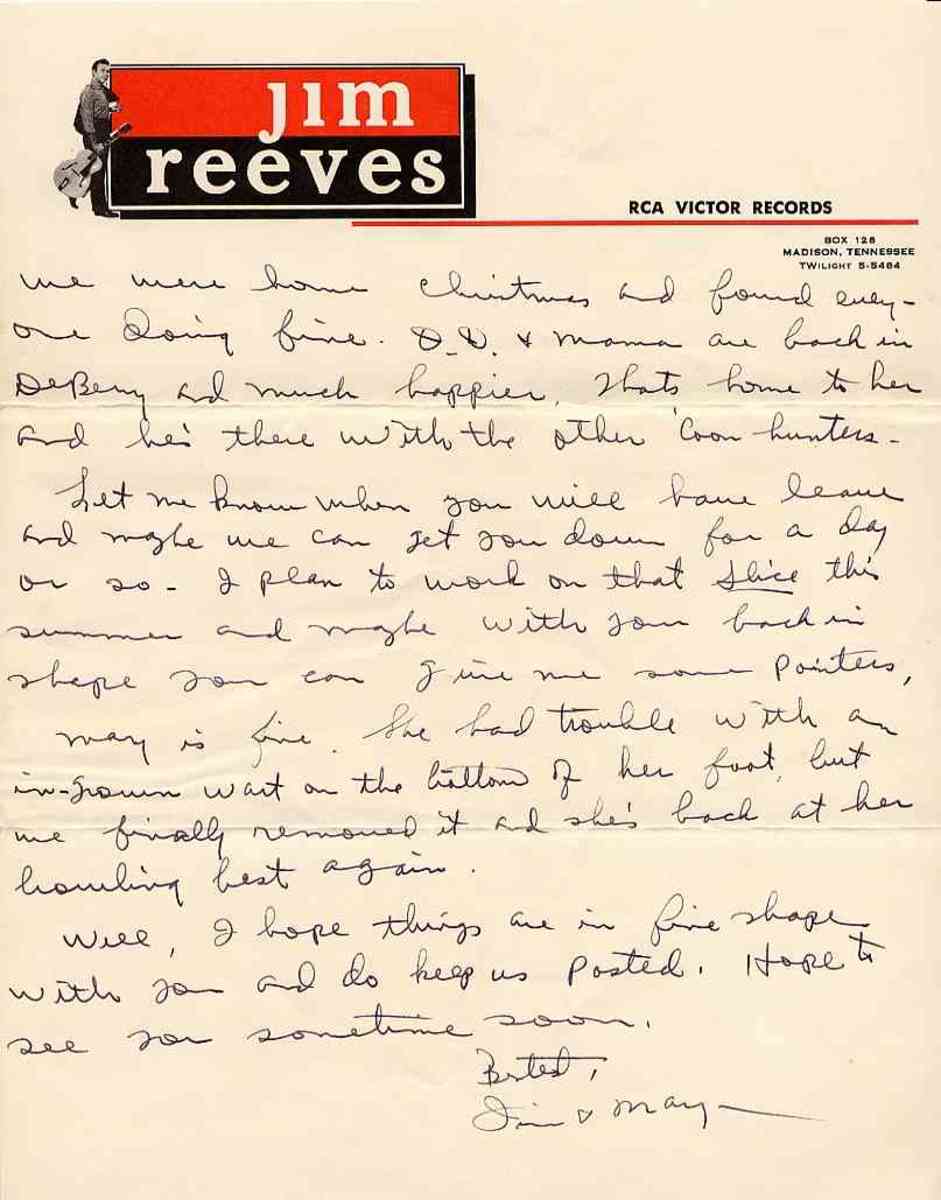 jim
reeves
RCA VICTOR RECORDS
BOX 128
MADISON, TENNESSEE
TWILIGHT 5-5484
We were home Christmas and found every-
one doing fine. D.D. & Mama are back in
DeBerry and much happier. Thats home to her
and he's there with the other 'Coon hunters-
Let me know when you will have leave
and maybe we can get you down for a day
or so- I plan to work on that slice this
summer and maybe with your back in
shape you can give me some pointers,
Mary is fine. She had trouble with an
in-grown wart on the bottom of her foot, but
we finally removed it and she's back at her
bowling best again.
Well, I hope things are in fine shape
with you and do keep us posted. Hope to
see you sometime soon.
Bested,
Jim & Mary